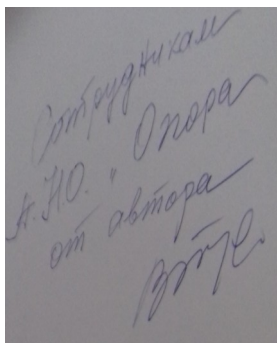 Сотрудникам
А.НО. "Опора
от автора